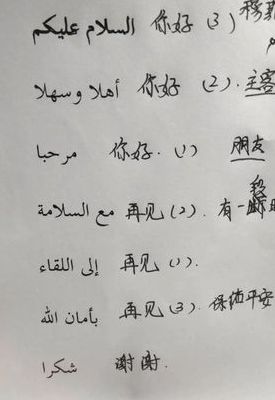 السلام عليكم 你好 (3) 穆斯
أهلا وسهلا 你好 (2). 主客
مرحبا 你好. (1) 朋友
مع السلامة 再见 (2). 有一段
إلى اللقاء 再见 (1).
بأمان الله 再见 (3). 保绩平安
شكرا 谢谢.